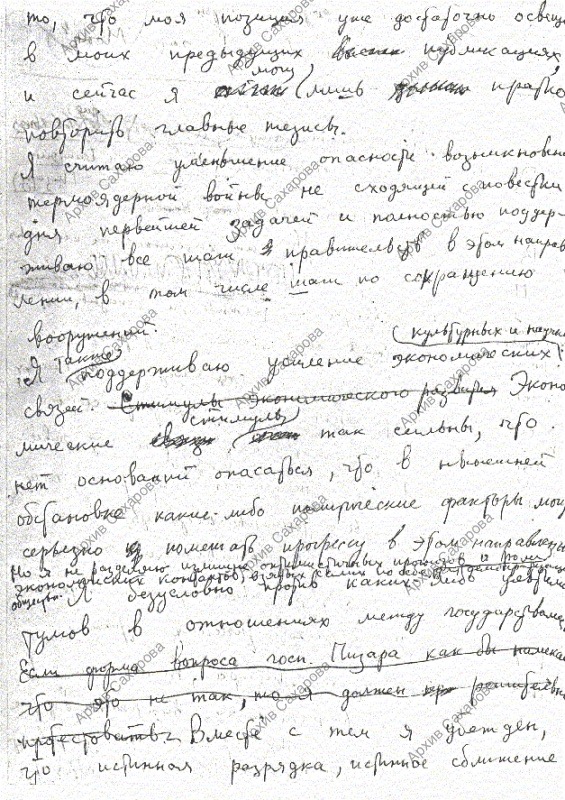 то, что моя позиция уже достаточно освещ
в моих предыдущих публикациях,
могу
и сейчас я лишь кратко
повторить главные тезисы.
Я считаю уменьшение опасности возникновени
термоядерной войны не сходящей с повестки
дня первейшей задачей и полностью поддер-
живаю все шаги правительств в этом направ
лении, в том числе шаги по сокращению
вооружений.
культурных и научн
Я также поддерживаю усиление экономических
связей. Стимулы экономического развития Эконо
стимулы
мические так сильны, что
нет оснований опасаться, что в нынешней
обстановке какие-либо политические факторы могу
серьезно помешать прогрессу в этом направлении
Но я не разделяю излишне оптимистичных прогнозов о роли
экономических контактов, взятых сами по себе
общества. Я безусловно против каких-либо ультима
тумов в отношениях между государствами,
Если форма вопроса госп. Пизара как бы намекае
что это не так, то я должен решительно
протестовать. Вместе с тем я убежден,
что истинная разрядка, истинное сближение
Архив Сахарова